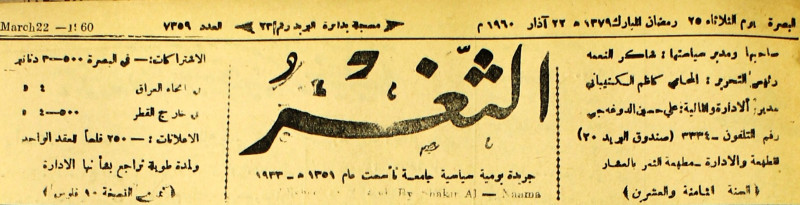 البصرة يوم الثلاثاء ٢٥ رمضان المبارك ١٣٧٩ هـ ٢٢ آذار ١٩٦٠ م
مسجلة بدائرة البريد رقم ٢٣
العدد ٧٣٥٩
March 22 — 1960
صاحبها ومدير سياستها : شاكر النعمه
رئيس التحرير : المحامي كاظم
مدير الادارة والمالية : علي حسين
رقم التلفون — ٣٣٣٤ (صندوق البريد ٢٠)
المطبعة والادارة — مطبعة الثغر بالعشار
( السنة الثامنة والعشرين )
الثغر
جريدة يومية سياسية جامعة تأسست عام ١٣٥١ هـ — ١٩٣٣
By Shakir Al — Naama
الاشتراكات : — في البصرة ٥٠٠ — ٣ دنانير
في انحاء العراق ٤
في خارج القطر ٥٠٠ — ٤
الاعلانات : — ٢٥٠ فلساً للعقد الواحد
ولمدة طويلة تراجع بشأنها الادارة
( ثمن النسخة ١٠ فلوس )